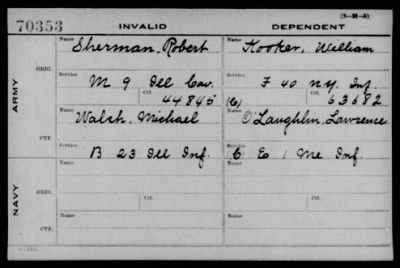 (3-M-3)
70353 INVALID DEPENDENT
Name Sherman, Robert Name Hooker, William
ORIG.
Service M 9 Ill Cav. Service F 40 N.Y. Inf.
Ctf. 44845 (C) Ctf. 63682
ARMY
Name Walsh, Michael Name O'Laughlin, Lawrence
CTF.
Service B 23 Ill Inf. Service C E 1 Me Inf.
Name Name
ORIG.
Service Ctf. Service Ctf.
NAVY
Name Name
CTF.